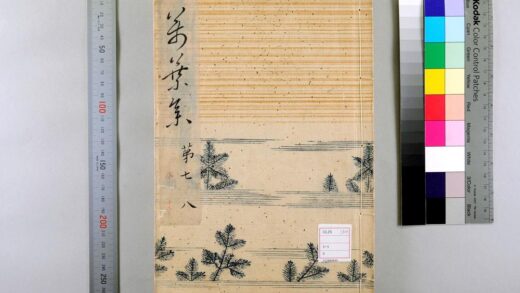 萬葉集
第七 八
Kodak Color Control Patches
Blue
Cyan
Green
Yellow
Red
Magenta
White
3/Color
Black
100
150
200
250